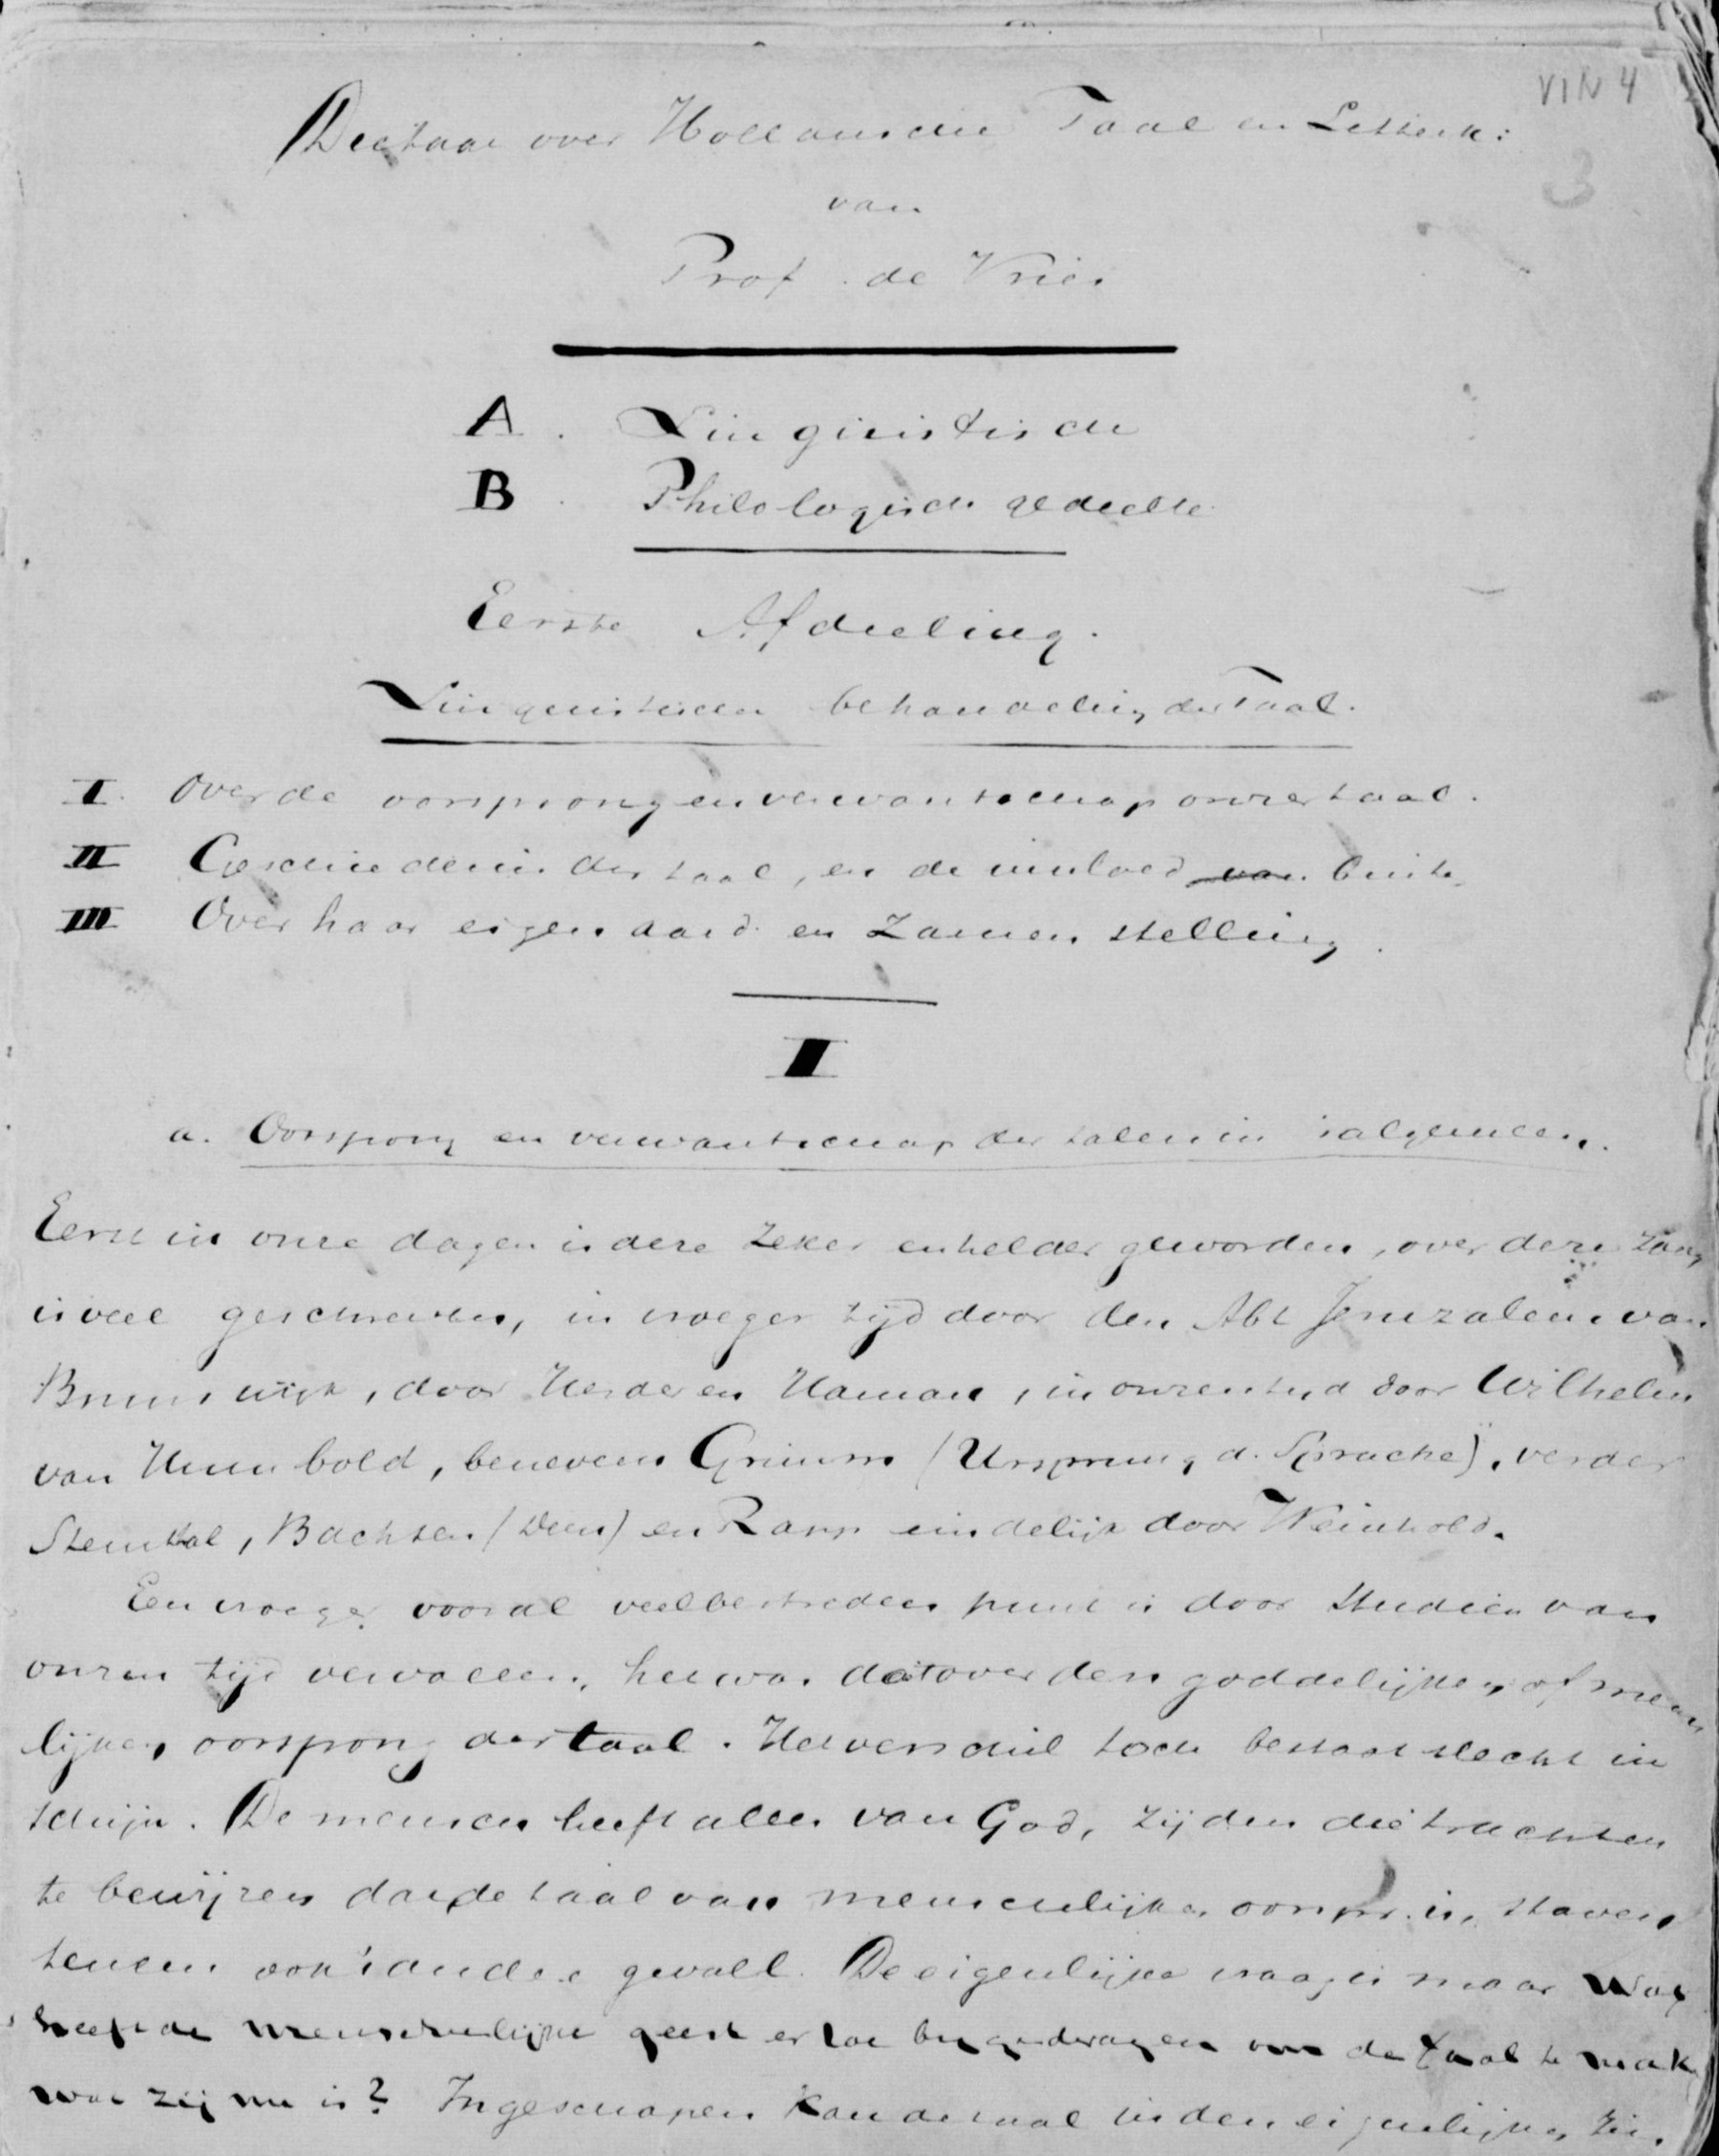 VIN 4
3
Dictaat over Hollansche Taal en Letterk:
van
Prof. de Vries
A. Linguistische
B. Philologische gedeelte
Eerste Afdeeling.
Linguistische behandeling der Taal.
I. Over de oorsprong en verwantschap onzer taal.
II Geschiedenis der taal, en de invloed van buiten
III Over haar eigen aard en zamenstelling.
I
a. Oorsprong en verwantschap der talen in 't algemeen.
Eerst in onze dagen is deze zeker en helder geworden, over deze zaak
is veel geschreven, in vroeger tijd door den Abt Jeruzalem van
Brunswijk, door Herder en Haman, in onzen tijd door Wilhelm
van Humbold, benevens Grimm (Ursprung d. Sprache), verder
Steinthal, (Deen) en Rapp eindelijk door Weinhold.
Een vroeger vooral veelbestreden punt is door studien van
onzen tijd vervallen, het was dat over den goddelijken of mens
lijken oorsprong der taal. Het verschil toch bestaat slecht in
schijn. De mensch heeft alles van God, zij dus die trachten
te bewijzen dat de taal van menschelijke oorspr. is, staven
tevens ook 't andere gevoel. De eigenlijke vraag is maar wat
heeft de menschelijke geest er toe bijgedragen om de taal te mak
wat zij nu is? Ingeschapen kan de taal in den eigenlijken zin